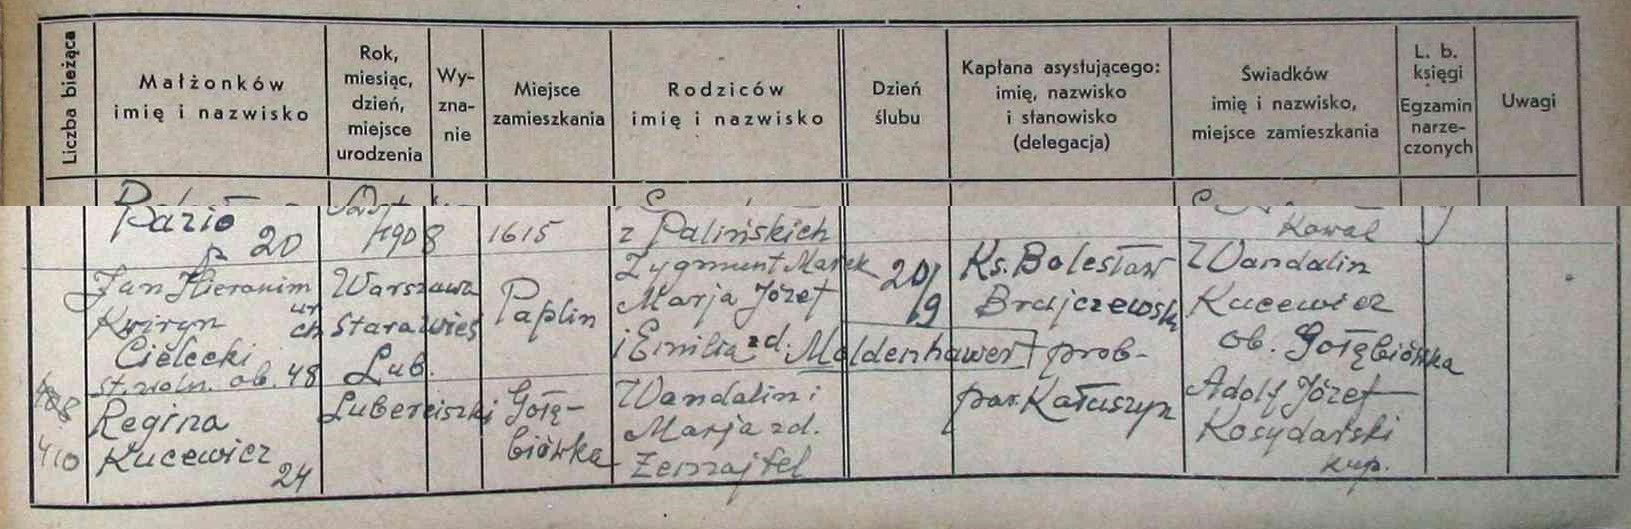 Liczba bieżąca
Małżonków
imię i nazwisko
Rok,
miesiąc,
dzień,
miejsce
urodzenia
Wy-
zna-
nie
Miejsce
zamieszkania
Rodziców
imię i nazwisko
Dzień
ślubu
Kapłana asystującego:
imię, nazwisko
i stanowisko
(delegacja)
Świadków
imię i nazwisko,
miejsce zamieszkania
L. b.
księgi
Egzamin
narze-
czonych
Uwagi
20
1908
1615
z Palińskich
Kowal
Jan Hieronim
Kwiryn
Cielecki
st. woln. ob. 48
Warszawa
Stara Wieś
Lub.
Paplin
Zygmunt Marek
Marja Józef
i Emilia zd. Moldenhawer
20/9
Ks. Bolesław
prob.
par. Kałuszyn
Wandalin
Kucewicz
ob. Gołębiówka
410
Regina
Kucewicz
24
Gołę-
biówka
Wandalin i
Marja zd.
Adolf Józef
Kosydarski
kup.